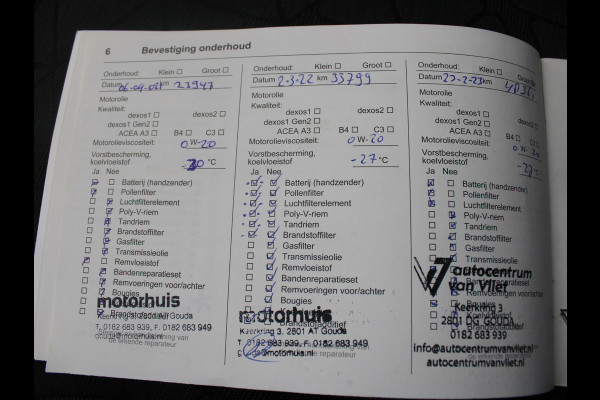 6 Bevestiging onderhoud
Onderhoud: Klein ☐ Groot ☐
Datum km 23947
Motorolie
Kwaliteit:
dexos1 ☐ dexos2 ☐
dexos1 Gen2 ☐
ACEA A3 ☐ B4 ☐ C3 ☐
Motorolieviscositeit: 0 W-20
Vorstbescherming,
koelvloeistof -30 °C
Ja Nee
Batterij (handzender)
Pollenfilter
Luchtfilterelement
Poly-V-riem
Tandriem
Brandstoffilter
Gasfilter
Transmissieolie
Remvloeistof
Bandenreparatieset
Remvoeringen voor/achter
Bougies
motorhuis
T. 0182 683 939, F. 0182 683 949
de erkende reparateur
Onderhoud: Klein ☐ Groot ☐
Datum 2-3-22 km 33799
Motorolie
Kwaliteit:
dexos1 ☐ dexos2 ☐
dexos1 Gen2 ☐
ACEA A3 ☐ B4 ☐ C3 ☐
Motorolieviscositeit: 0 W-20
Vorstbescherming,
koelvloeistof -27 °C
Ja Nee
Batterij (handzender)
Pollenfilter
Luchtfilterelement
Poly-V-riem
Tandriem
Brandstoffilter
Gasfilter
Transmissieolie
Remvloeistof
Bandenreparatieset
Remvoeringen voor/achter
Bougies
motorhuis
Brandstofadditief
Keerkring 3, 2801 AT Gouda
T. 0182 683 939, F. 0182 683 949
@motorhuis.nl
reparateur
Onderhoud: Klein ☐ Groot
Datum 22-2-23 km
Motorolie
Kwaliteit:
dexos1 ☐ dexos2 ☐
dexos1 Gen2 ☐
ACEA A3 ☐ B4 ☐ C3
Motorolieviscositeit: 0 W-20
Vorstbescherming,
koelvloeistof
Ja Nee
Batterij (handzender)
Pollenfilter
Luchtfilterelement
Poly-V-riem
Tandriem
Brandstoffilter
Gasfilter
Transmissieolie
autocentrum
van Vliet
Remvoeringen voor/achter
Bougies
Keerkring 3
2801 DG GOUDA
0182 683 939
info@autocentrumvanvliet.nl
autocentrumvanvliet.nl